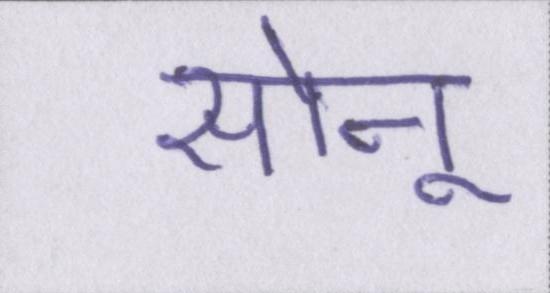 सोनू